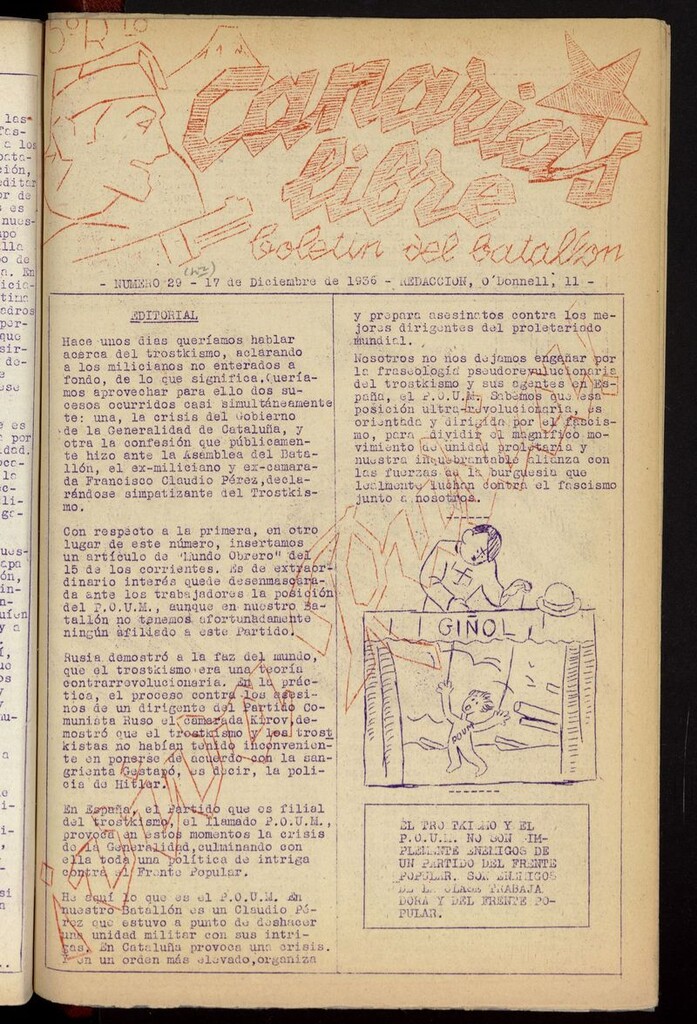 5º R
Canarias
libre
boletin del batallon
- NUMERO 29 - 17 de Diciembre de 1936 - REDACCION, O'Donnell, 11 -
EDITORIAL
Hace unos dias queríamos hablar
acerca del trostkismo, aclarando
a los milicianos no enterados a
fondo, de lo que significa. Quería-
mos aprovechar para ello dos su-
cesos ocurridos casi simultáneamente
te: una, la crisis del Gobierno
de la Generalidad de Cataluña, y
otra la confesión que públicamen-
te hizo ante la Asamblea del Bata-
llón, el ex-miliciano y ex-camara-
da Francisco Claudio Pérez, decla-
rándose simpatizante del Trostkis-
mo.
Con respecto a la primera, en otro
lugar de este número, insertamos
un artículo de "Mundo Obrero" del
15 de los corrientes. Es de extraor-
dinario interés quede desenmascara-
da ante los trabajadores la posición
del P.O.U.M., aunque en nuestro Ba-
tallón no tenemos afortunadamente
ningún afiliado a este Partido.
Rusia demostró a la faz del mundo,
que el trostkismo era una teoría
contrarrevolucionaria. En la prác-
tica, el proceso contra los asesi-
nos de un dirigente del Partido Co-
munista Ruso el camarada Kirov, de-
mostró que el trostkismo y los trost
kistas no habían tenido inconvenien-
te en ponerse de acuerdo con la san-
grienta Gestapó, es decir, la poli-
cia de Hitler.
En España, el Partido que es filial
del trostkismo, el llamado P.O.U.M.,
provoca en estos momentos la crisis
de la Generalidad, culminando con
ella toda una política de intriga
contra el Frente Popular.
He aquí lo que es el P.O.U.M. En
nuestro Batallón es un Claudio Pé-
rez que estuvo a punto de deshacer
una unidad militar con sus intri-
gas. En Cataluña provoca una crisis.
Y en un orden más elevado, organiza
y prepara asesinatos contra los me-
jores dirigentes del proletariado
mundial.
Nosotros no nos dejamos engañar por
la fraseología pseudorevolucionaria
del trostkismo y sus agentes en Es-
paña, el P.O.U.M. Sabemos que esa
posición ultra-revolucionaria, es
orientada y dirigida por el fascis-
mo, para dividir el magnífico mo-
vimiento de unidad proletaria y
nuestra inquebrantable alianza con
las fuerzas de la burguesia que
lealmente luchan contra el fascismo
junto a nosotros.
GIÑOL
POUM
EL TROSTKISMO Y EL
P.O.U.M. NO SON SIM-
PLEMENTE ENEMIGOS DE
UN PARTIDO DEL FRENTE
POPULAR. SON ENEMIGOS
DE LA CLASE TRABAJA
DORA Y DEL FRENTE PO-
PULAR.